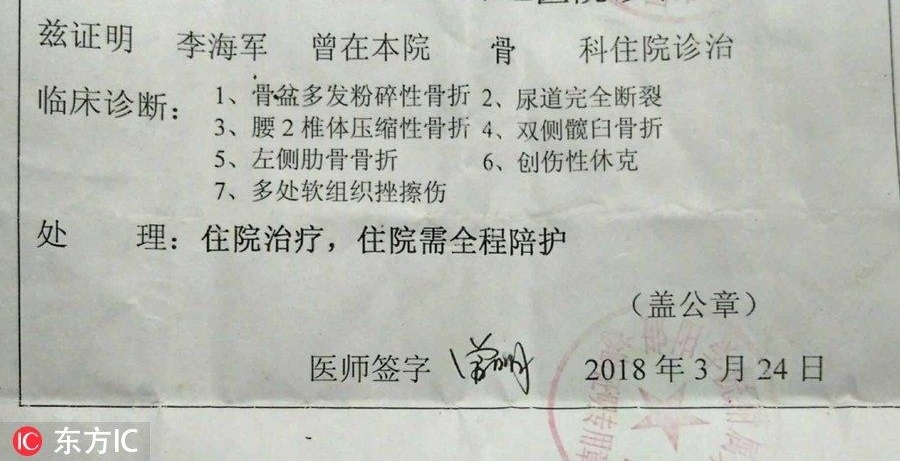 兹证明 李海军 曾在本院 骨 科住院诊治
临床诊断：1、骨盆多发粉碎性骨折 2、尿道完全断裂
3、腰2椎体压缩性骨折 4、双侧髋臼骨折
5、左侧肋骨骨折 6、创伤性休克
7、多处软组织挫擦伤
处 理：住院治疗，住院需全程陪护
（盖公章）
医师签字 2018年3月24日
东方IC